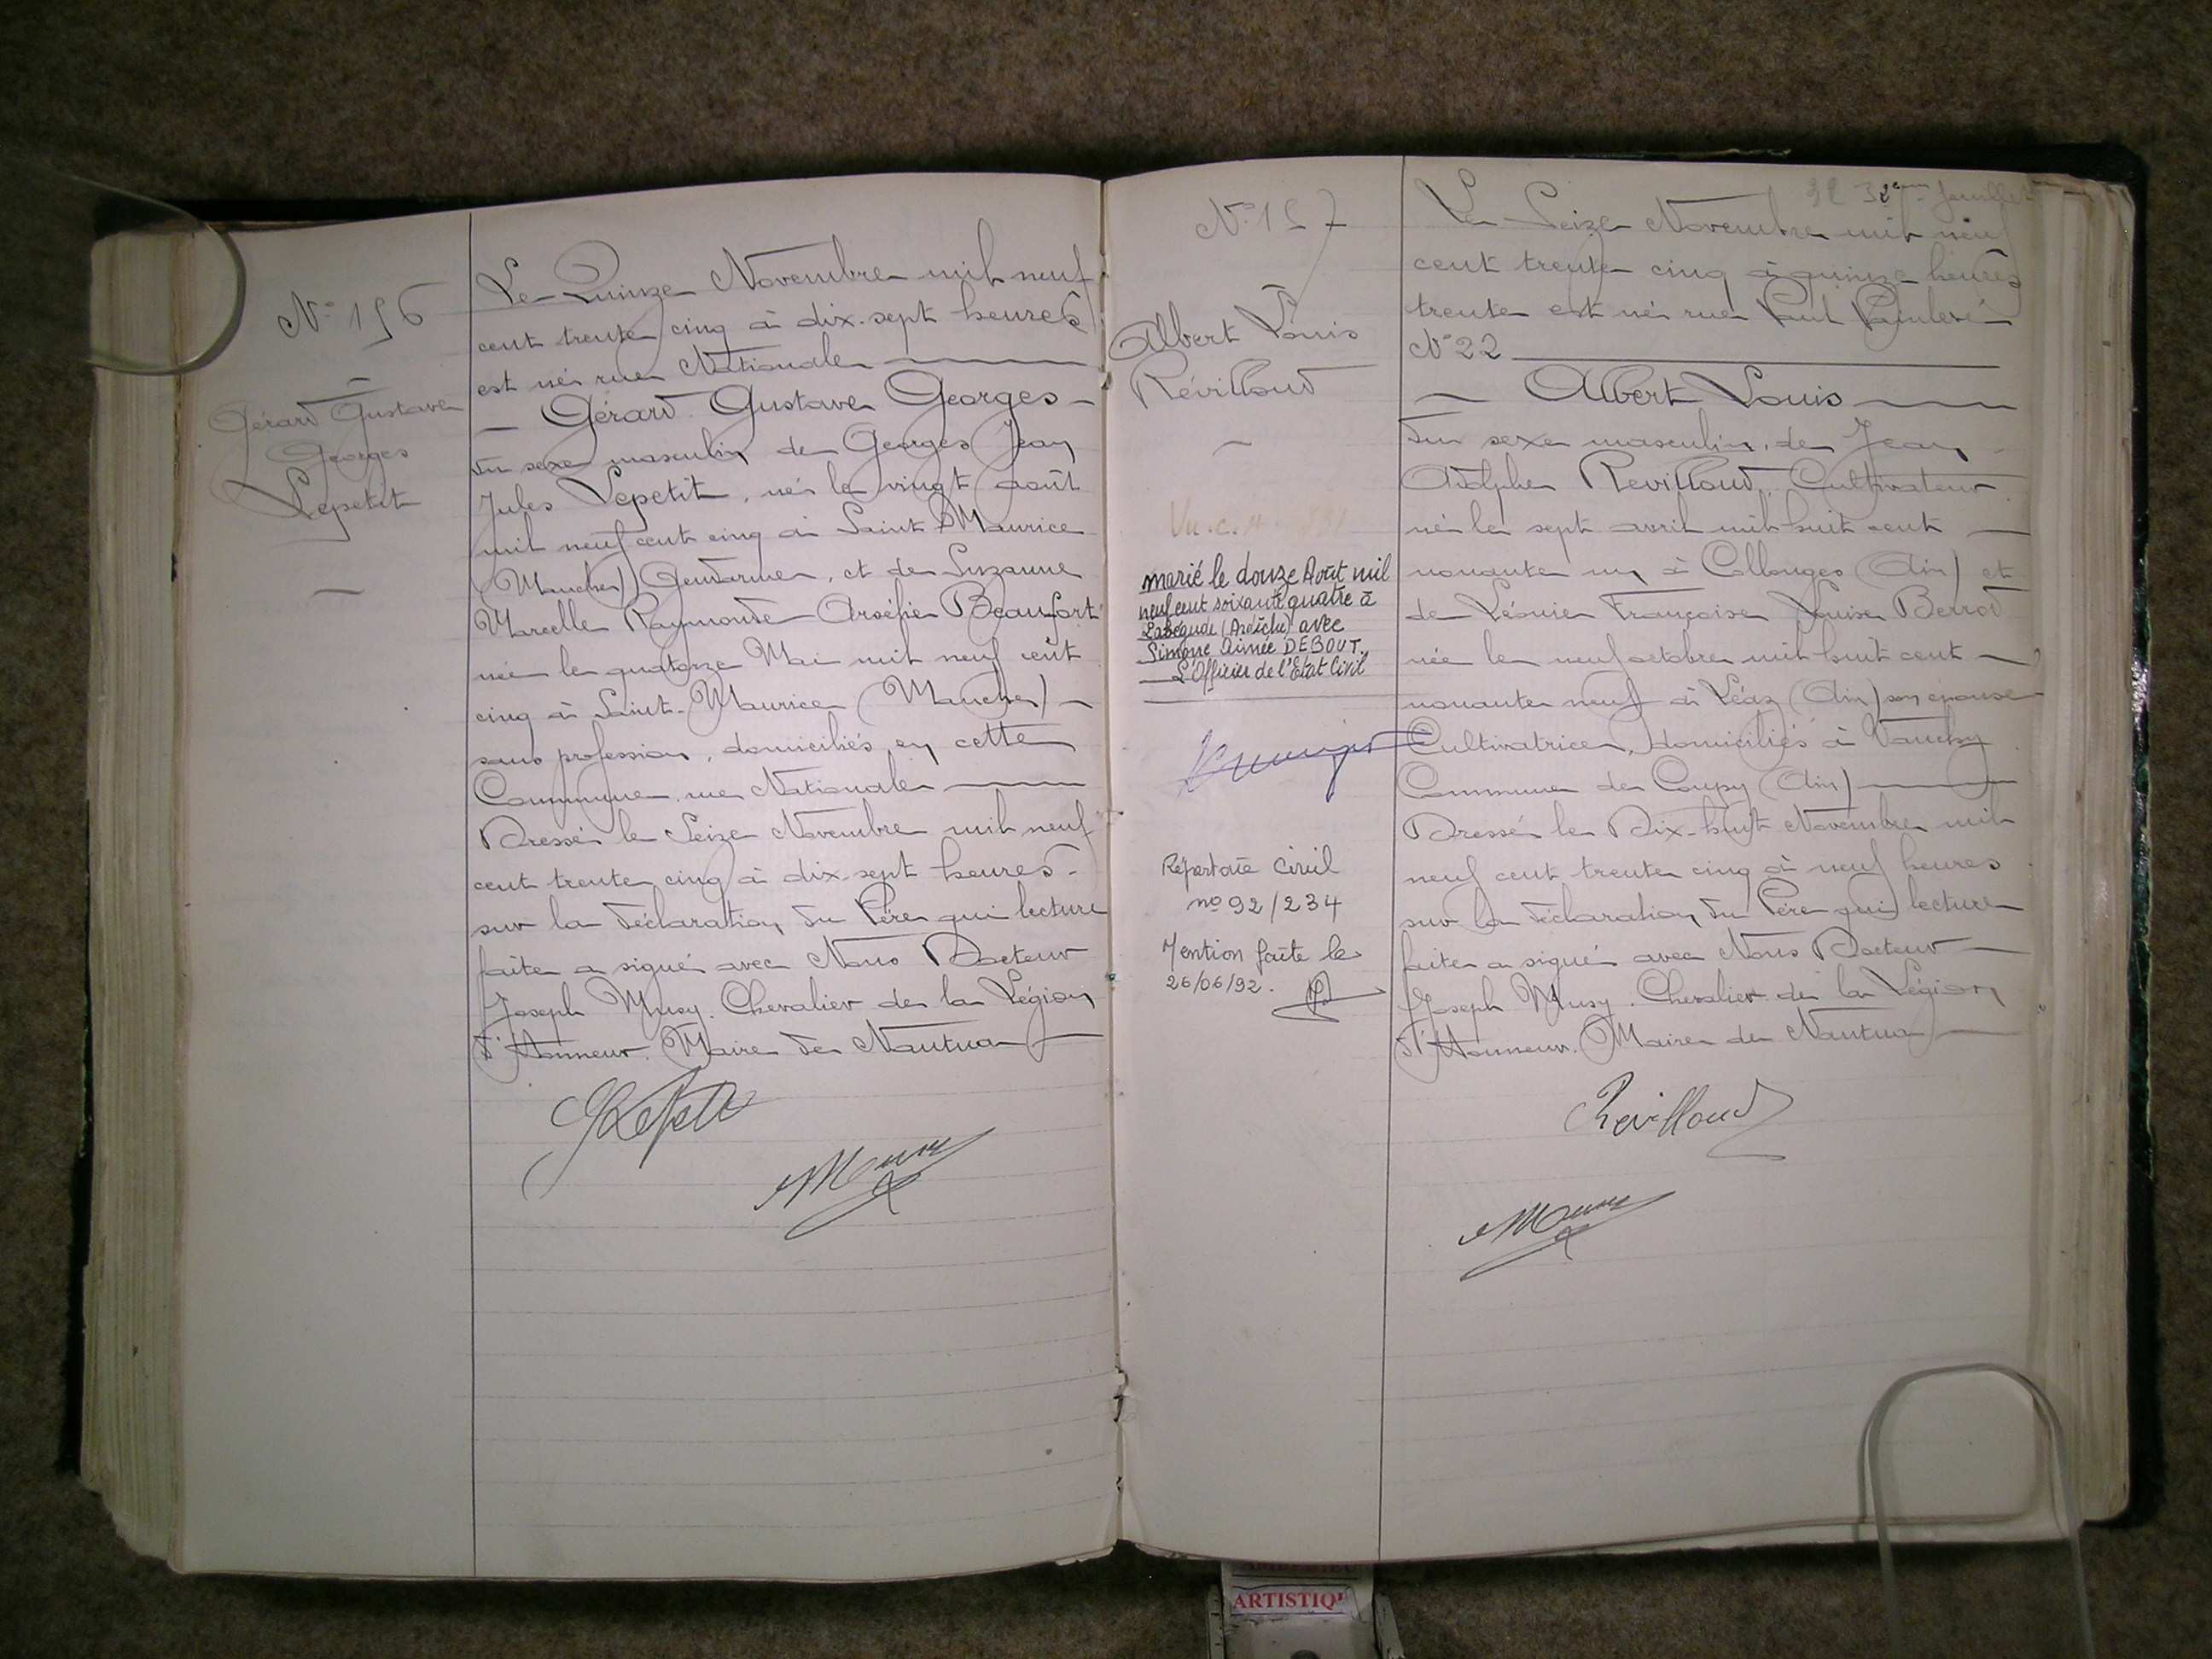 N° 156
Gérard Gustave
Georges
Lepetit
Le Quinze Novembre mil neuf
cent trente cinq à dix-sept heures
est né rue Nationale
Gérard Gustave Georges
du sexe masculin de Georges Jean
Jules Lepetit, né le vingt août
mil neuf cent cinq à Saint Maurice
(Manche) Gendarme, et de Suzanne
Marcelle Raymonde Arsélie Beaufort
née le quatorze Mai mil neuf cent
cinq à Saint-Maurice (Manche)
sans profession, domiciliés en cette
Commune, rue Nationale
Dressé le Seize Novembre mil neuf
cent trente cinq à dix-sept heures
sur la déclaration du Père qui lecture
faite a signé avec Nous Docteur
Joseph Musy. Chevalier de la Légion
d'Honneur. Maire de Nantua
N° 157
Albert Louis
Révilloud
marié le douze Août mil
neuf cent soixante quatre à
Labégude (Ardèche) avec
Simone Aimée DEBOUT.
L'Officier de l'Etat Civil
Répertoire Civil
n° 92/234
Mention faite le
26/06/92.
32 32e feuillet
Le Seize Novembre mil neuf
cent trente cinq à quinze heures
trente est né rue Paul Painlevé
N° 22
Albert Louis
du sexe masculin, de Jean
Adolphe Revilloud, Cultivateur
né le sept avril mil huit cent
nonante un à Collonges (Ain) et
de Léonie Françoise Louise Berrod
née le neuf octobre mil huit cent
nonante neuf à Léaz (Ain) son épouse
Cultivatrice, domiciliés à Vanchy
Commune de Coupy (Ain)
Dressé le Dix-huit Novembre mil
neuf cent trente cinq à neuf heures
sur la déclaration du Père qui lecture
faite a signé avec Nous Docteur
Joseph Musy. Chevalier de la Légion
d'Honneur. Maire de Nantua
Revilloud
ARTISTIQ